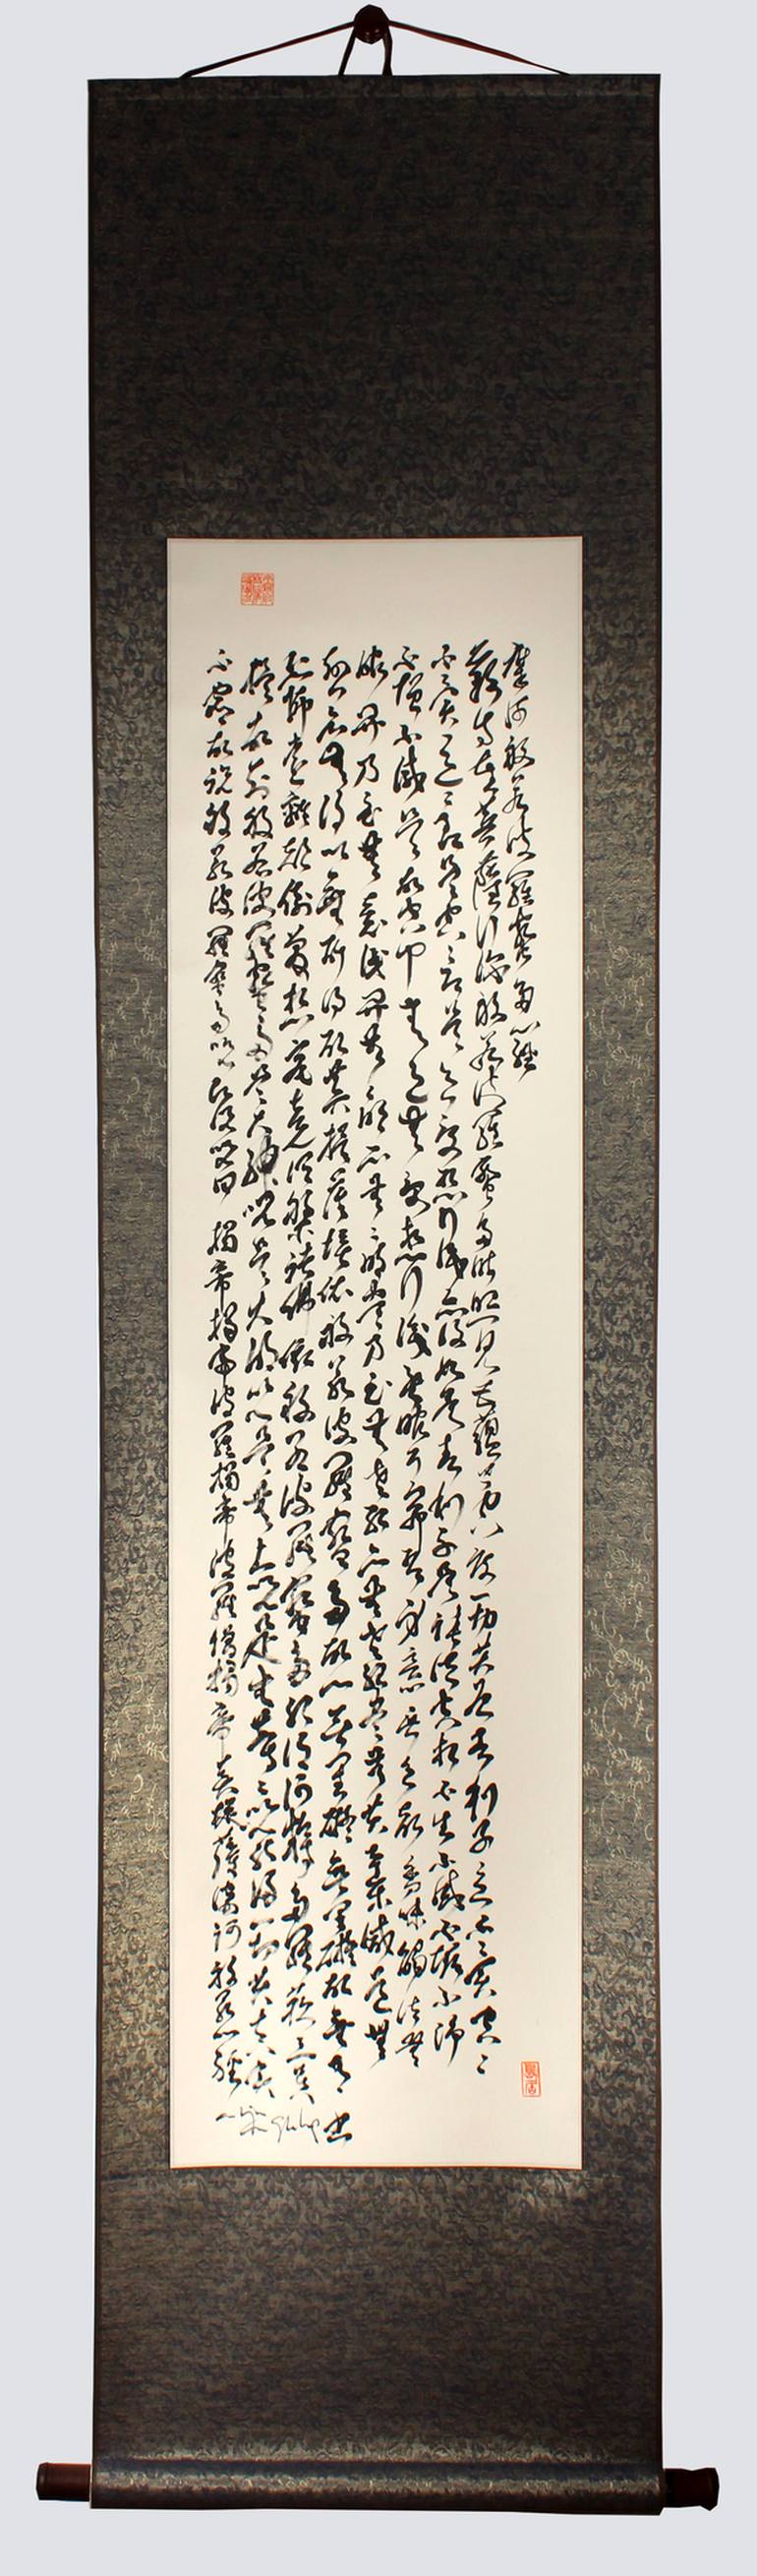 摩訶般若波羅蜜多心經
觀自在菩薩行深般若波羅蜜多時照見五蘊皆空度一切苦厄舍利子色不異空空
不異色色即是空空即是色受想行識亦復如是舍利子是諸法空相不生不滅不垢不淨
不增不減是故空中無色無受想行識無眼耳鼻舌身意無色聲香味觸法無
眼界乃至無意識界無無明亦無無明盡乃至無老死亦無老死盡無苦集滅道無
智亦無得以無所得故菩提薩埵依般若波羅蜜多故心無罣礙無罣礙故無有
恐怖遠離顛倒夢想究竟涅槃諸佛依般若波羅蜜多故得阿耨多羅三藐三菩
提故知般若波羅蜜多是大神咒是大明咒是無上咒是無等等咒能除一切苦真實
不虛故說般若波羅蜜多咒即說咒曰 揭帝揭帝波羅揭帝波羅僧揭帝菩提薩婆訶般若心經